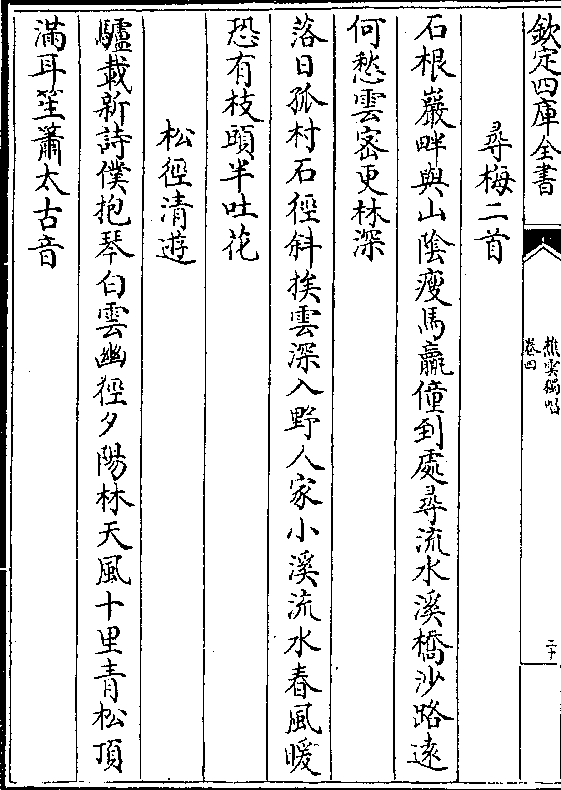 欽定四庫全書
樵雲獨唱
卷四
二十
尋梅二首
石根巖畔與山陰瘦馬羸僮到處尋流水溪橋沙路遠
何愁雲密更林深
落日孤村石徑斜挨雲深入野人家小溪流水春風暖
恐有枝頭半吐花
松徑清遊
驢載新詩僕抱琴白雲幽徑夕陽林天風十里青松頂
滿耳笙簫太古音